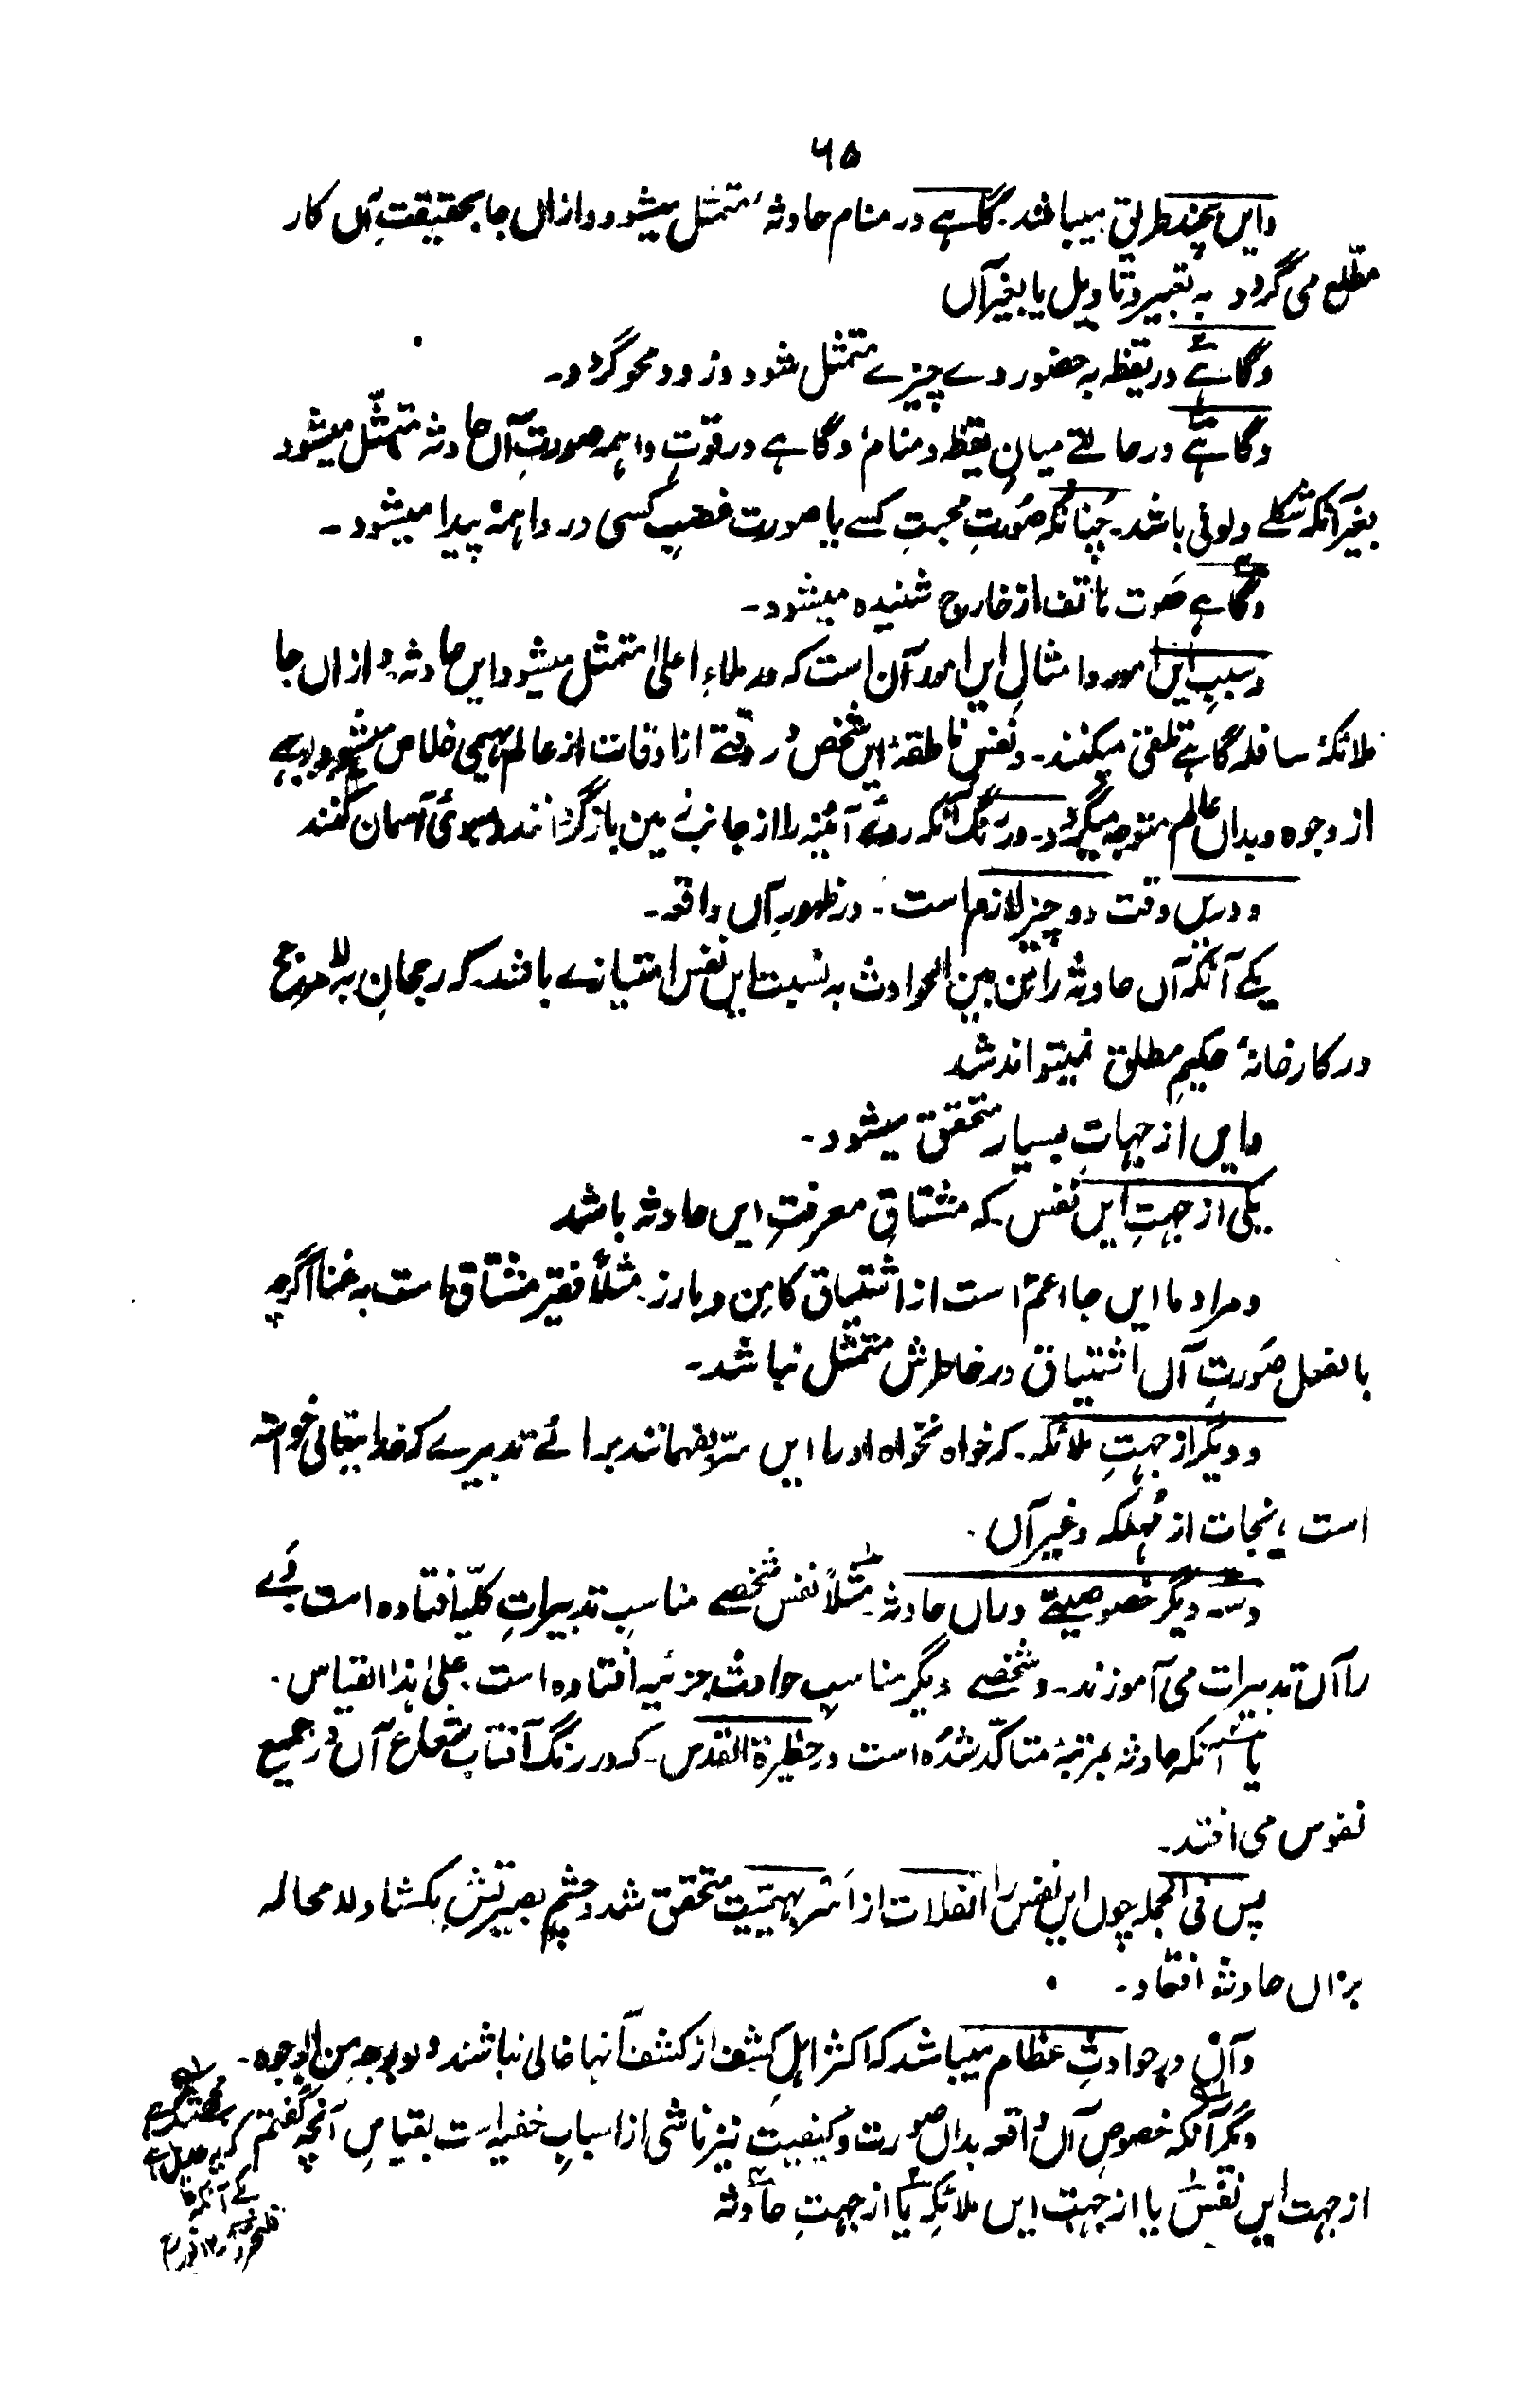 ۶۵
وایں بچند طریق میباشد۔ گاہے در منام حادثہٴ متمثل میشود وازاں جا بحقیقتِ آں کار
مطّلع می گردد بہ تعبیر و تاویل یا بغیر آں
وگاہے در یقظہ بہ حضور وے چیزے متمثل شود و زود محو گردد۔
وگاہے در حالتے میانِ یقظہ و منام وگاہے در قوتِ واہمہ صورتِ آں حادثہ متمثّل میشود
بغیر آنکہ شکلے ولونی باشد۔ چنانکہ صُورتِ محبتِ کسے یا صورت غضبِ کسی در واہمہ پیدا میشود۔
وگاہے صَوت ہاتف از خارج شنیدہ میشود۔
وسببِ ایں امور و امثالِ ایں امور آن است کہ در ملاءِ اعلیٰ متمثل میشود ایں حادثہ و ازاں جا
ملائکۂ سافلہ گاہے تلقی میکنند۔ ونفسِ ناطقۂ ایں شخص در وقتے از اوقات از عالمِ بہیمی خلاص میشود بوجہے
از وجوہ وبداں عالم متوجہ میگردد۔ در رنگ آنکہ روئے آئینہ را از جانبِ زمین باز گردانند وبسوئ آسمان کنند
و دریں وقت دو چیز لازم است۔ در ظہورِ آں واقعہ۔
یکے آنکہ آں حادثہ را من بین الحوادث بہ نسبت ایں نفس امتیازے باشد۔ کہ رجحانِ بلا مرجّح
در کارخانۂ حکیمِ مطلق نمیتواند شد
وایں از جہاتِ بسیار متحقق میشود۔
یکی از جہتِ ایں نفس کہ مشتاقِ معرفتِ ایں حادثہ باشد
ومراد ما ایں جا اعمّ است از اشتیاق کامِن و بارز۔ مثلاً فقیر مشتاق است بہ غنا اگرچہ
بالفعل صُورتِ آں اشتیاق در خاطرش متمثل نباشد۔
و دیگر از جہتِ ملائکہ۔ کہ خواہ نخواہ اورا ایں سِرّ بفہمانند برائے تدبیرے کہ خدا یتعالی خواستہ
است، نجات از مُہلکہ وغیر آں۔
وسہ دیگر خصوصیتے دراں حادثہ۔ مثلاً نفس شخصے مناسبِ تدبیراتِ کلیّہ افتادہ است وَے
را آں تدبیرات می آموزند۔ وشخصے دیگر مناسبِ حوادثِ جزئیہ افتادہ است۔ علیٰ ہذا القیاس۔
یا آنکہ حادثہ بمرتبۂ متاکّد شدہ است در حظیرۃ القدس۔ کہ در رنگ آفتاب شعاع آں در جمیع
نفوس می افتد۔
پس فی الجملہ چوں ایں نفس را انفلات از اَسْرِ بہیمیّت متحقق شد و چشمِ بصیرتش بکشاد لا محالہ
براں حادثہ افتاد۔
وآں در حوادثِ عظام میباشد کہ اکثر اہلِ کشف از کشفِ آنہا خالی نباشند ولو بوجہٍ من الوجوہ۔
دیگر آنکہ خصوصِ آں واقعہ بداں صورت وکیفیت نیز ناشی از اسبابِ خفیہ است بقیاسِ آنچہ گفتم کہ
از جہت ایں نفس یا از جہت ایں ملائکہ یا از جہتِ حادثہ